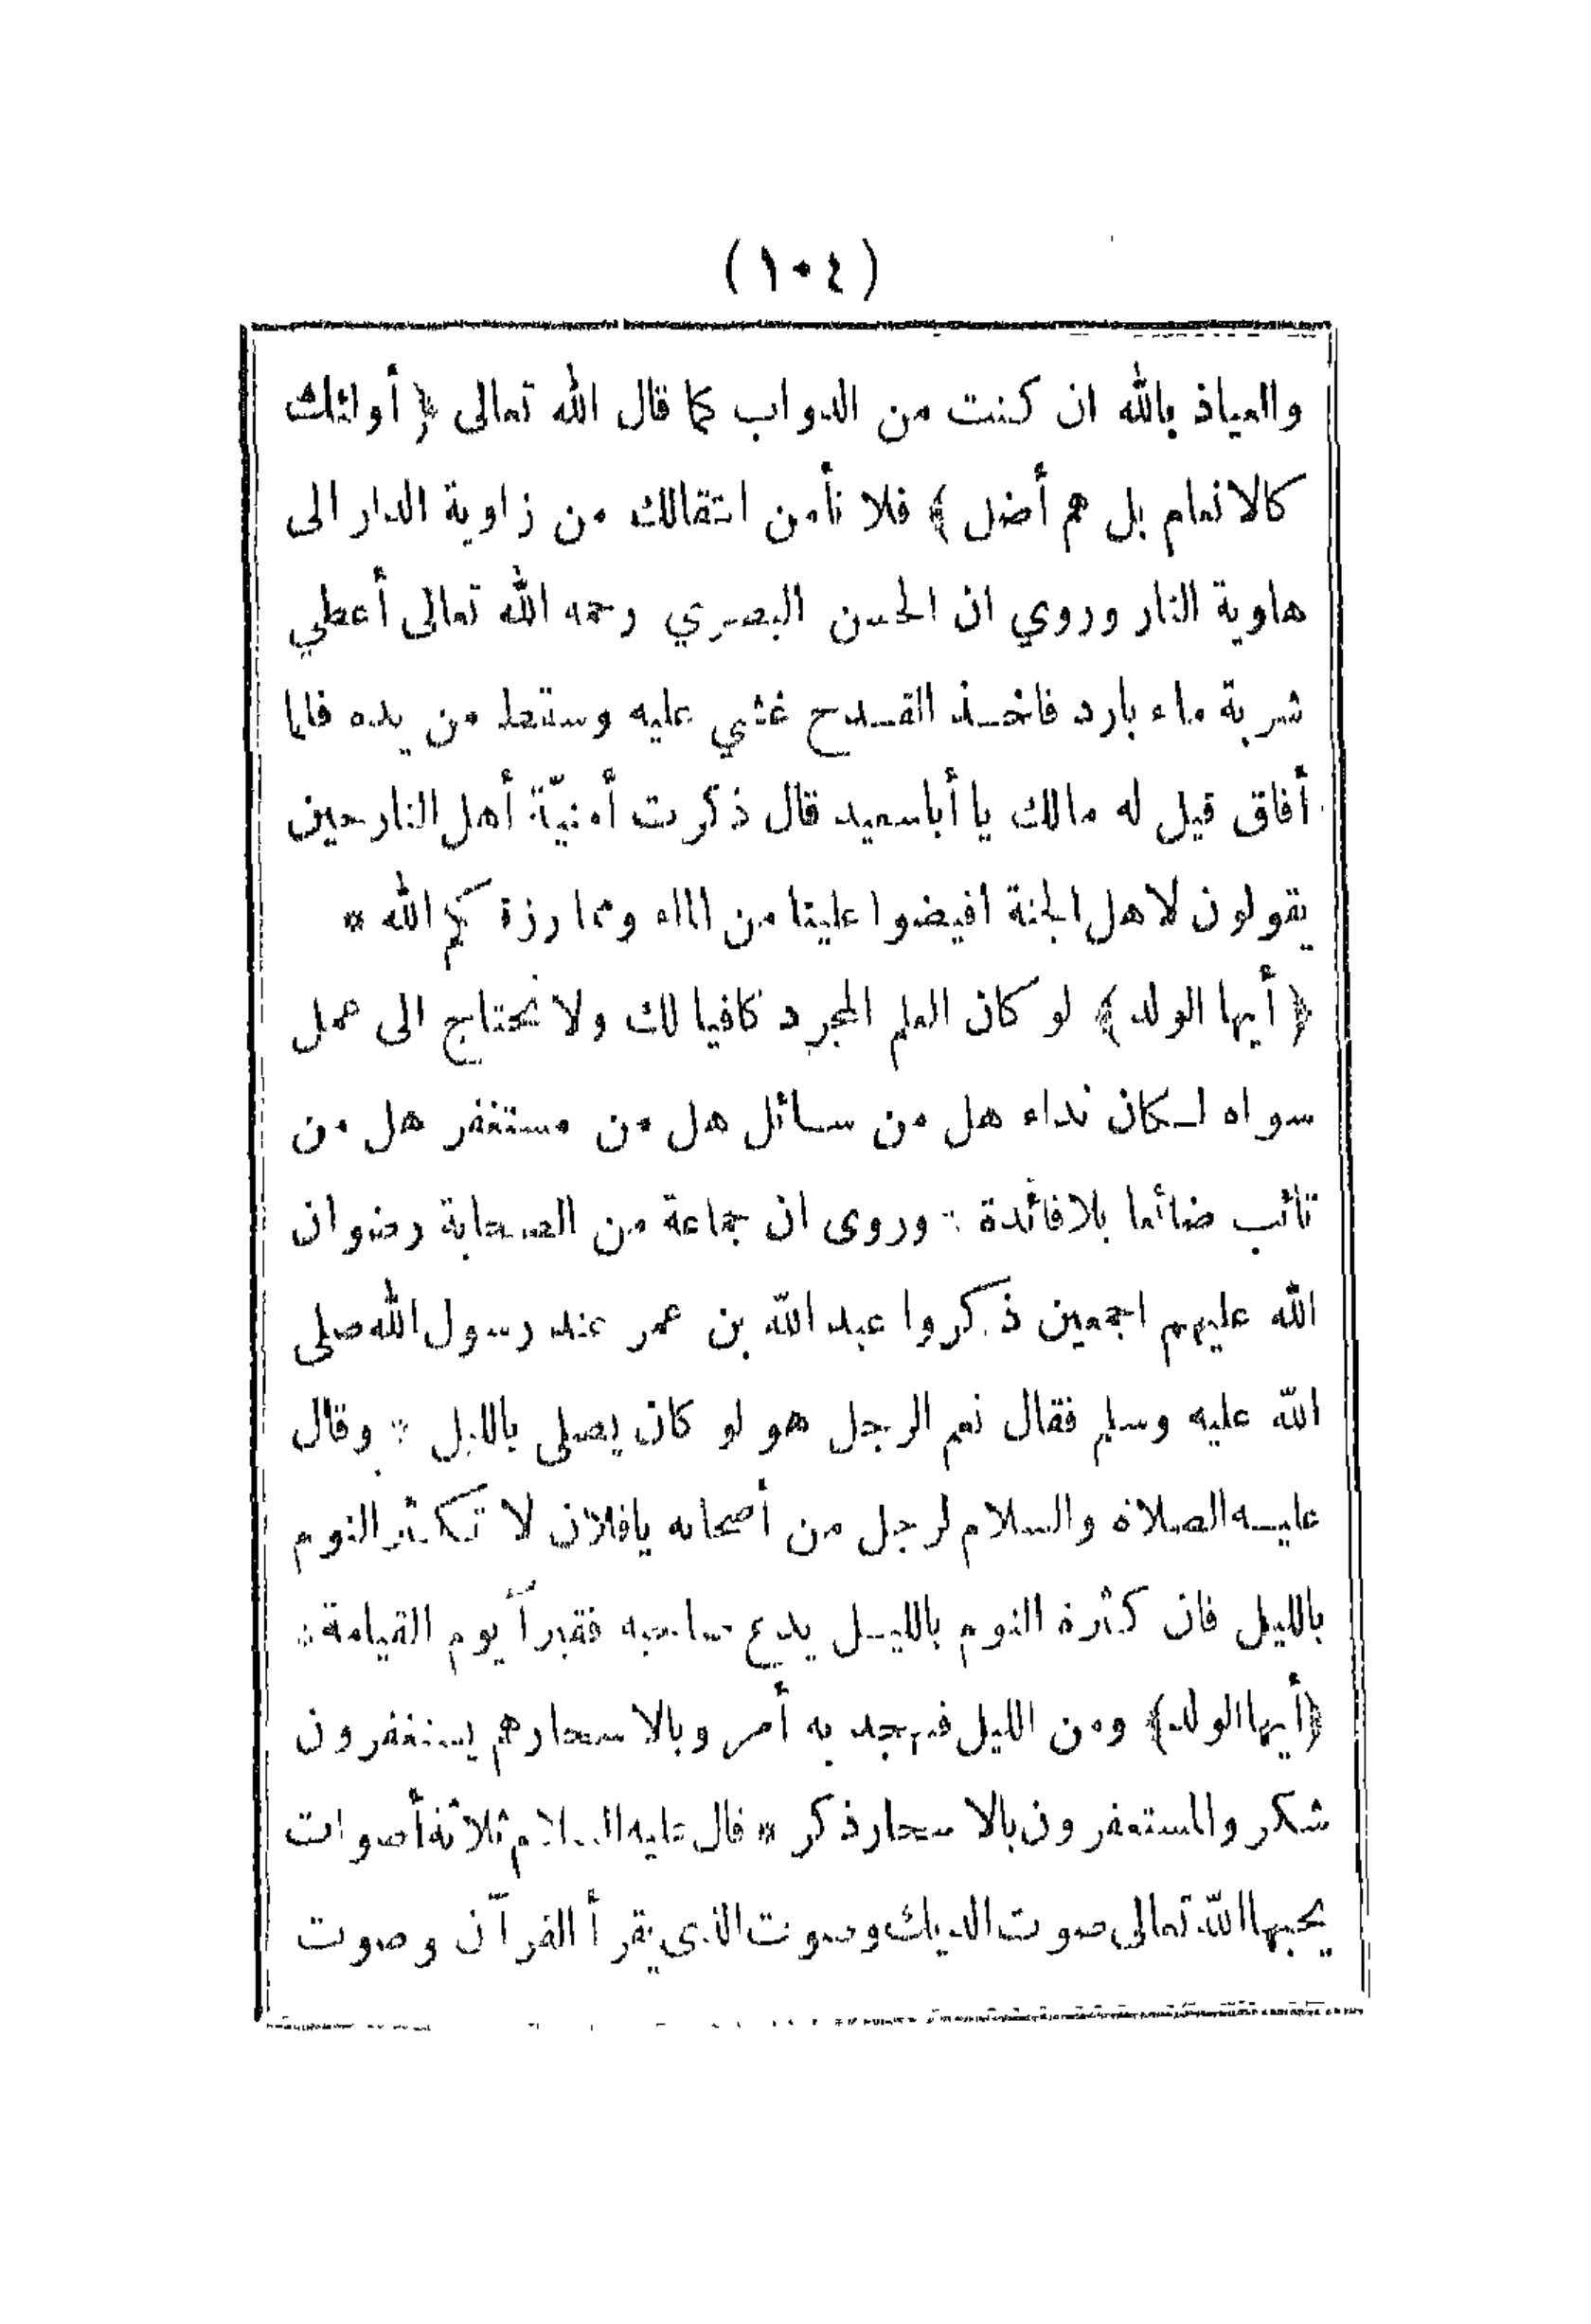 (١٠٤)
والعياذ بالله ان كنت من الدواب كما قال الله تعالى ﴿ أولئك
كالانعام بل هم أضل ﴾ فلا نأمن انتقالك من زاوية الدار الى
هاوية النار وروي ان الحسن البصري رحمه الله تعالى أعطي
شربة ماء بارد فاخذ القدح غشي عليه وسقط من يده فلما
أفاق قيل له مالك يا أباسعيد قال ذكرت أمنيّة أهل النار حين
يقولون لاهل الجنة افيضوا علينا من الماء ومما رزقكم الله *
﴿ أيها الولد ﴾ لو كان العلم المجرد كافيا لك ولا تحتاج الى عمل
سواه لكان نداء هل من سائل هل من مستغفر هل من
تائب ضائعا بلا فائدة * وروى ان جماعة من الصحابة رضوان
الله عليهم اجمعين ذكروا عبد الله بن عمر عند رسول الله صلى
الله عليه وسلم فقال نعم الرجل هو لو كان يصلى بالليل * وقال
عليه الصلاة والسلام لرجل من أصحابه يافلان لا تكثر النوم
بالليل فان كثرة النوم بالليل يدع صاحبه فقيراً يوم القيامة *
﴿أيها الولد﴾ ومن الليل فتهجد به أمر وبالاسحار هم يستغفرون
شكر والمستغفرون بالاسحار ذكر * قال عليه السلام ثلاثة أصوات
يحبها الله تعالى صوت الديك وصوت الذى يقرأ القرآن وصوت